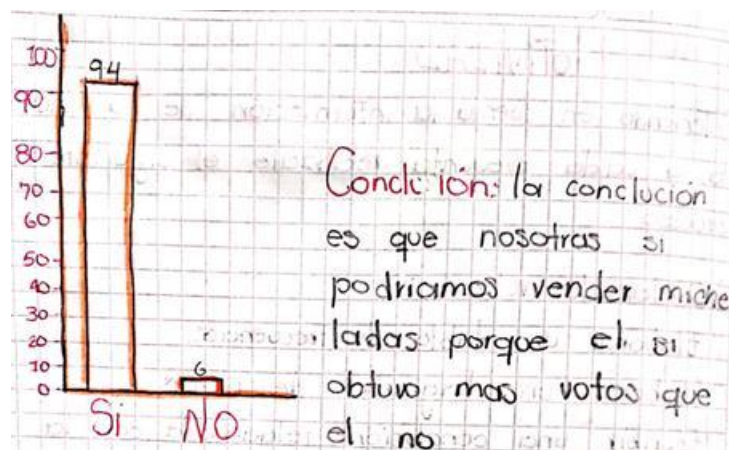 100
94
90
80
70
60
50
40
30
20
10
0
6
Si NO
Conclución: la conclución
es que nosotras si
podriamos vender miche
ladas porque el si
obtuvo mas votos que
el no